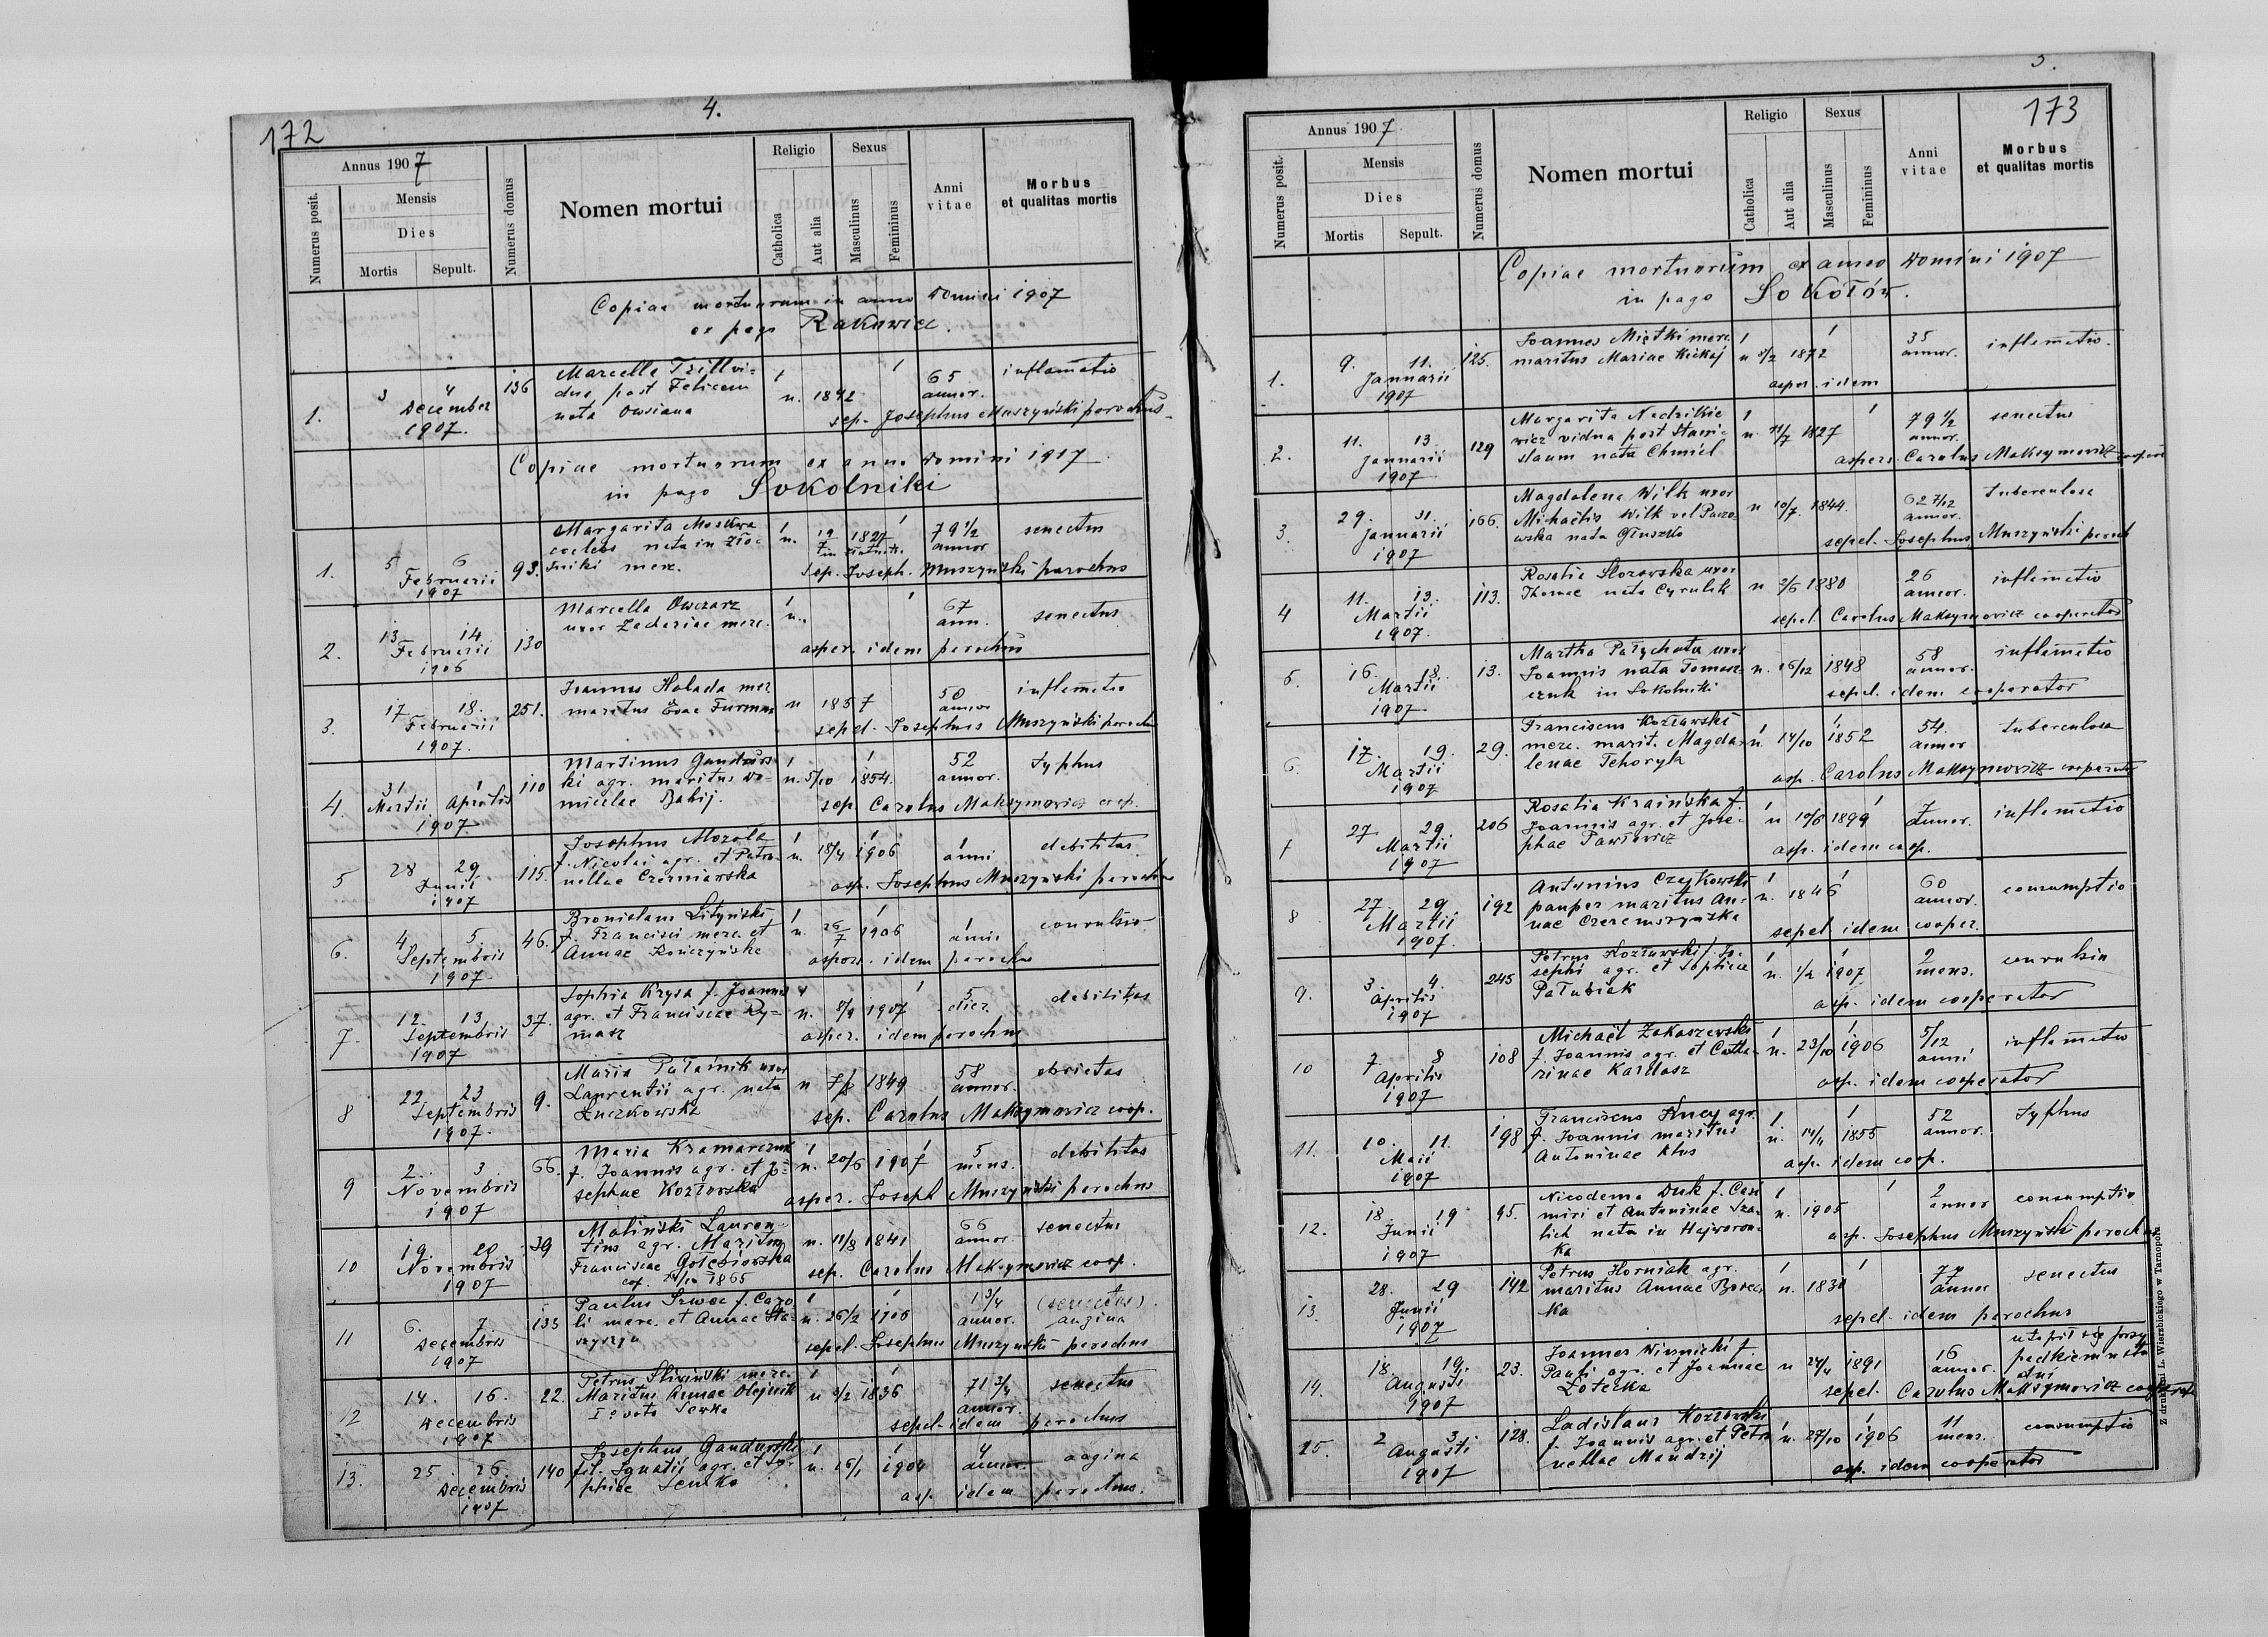 172
4.
Annus 1907
Numerus posit.
Mensis
Dies
Mortis
Sepult.
Numerus domus
Nomen mortui
Religio
Catholica
Aut alia
Sexus
Masculinus
Femininus
Anni vitae
Morbus et qualitas mortis
Copiae mortuorum in anno Domini 1907
ex pago Rakowiec.
1. 3 4 136 Marcella Trill vi- 1 1 65 inflam̄atio
December dua post Felicem n. 1842 annor.
1907. nata Owsiana sep. Josephus Muszyński parochus
Copiae mortuorum ex anno Domini 1917
in pago Sokolniki
1. 5 6 93. Margarita Moskwa 1 1 79 1/2 senectus
Februarii coelebs nata in Zło- n. 19/7 1827 annor
1907 tniki merc. sep. Joseph. Muszyński parochus
2. 13 14 130 Marcella Owczarz 1 1 67 senectus
Februarii uxor Zachariae merc. n. ann.
1906 asper. idem parochus
3. 17 18. 251. Joannes Halada mer. 50 inflam̄atio
Februarii maritus Evae Furman n 1857 annor
1907. sepel. Josephus Muszyński parochus
4. 31 1 110 Martinus Gandurs- 1 1 52 typhus
Martii Aprilis ki agr. maritus Do- n. 5/10 1854. annor.
1907. micelae Babij. sep. Carolus Maksymowicz coop.
5 28 29 115. Josephus Mozoła 1 1 1 debilitas
Junii f. Nicolai agr. et Petro- n. 18/4 1906 anni
1907 nellae Czerniawska asp. Josephus Muszyński parochus
6. 4 5 46. Bronislaus Lityński 1 1 1 convulsio
Septembris f. Francisci merc. et n. 26/7 1906 anni
1907. Annae Kończyńska aspers. idem parochus
7. 12. 13 37. Sophia Krysa f. Joannis 1 1 5 debilitas
Septembris agr. et Franciscae Ry- n. 8/9 1907 dier.
1907 masz asper. idem parochus
8 22 23 9. Maria Pałamik uxor 58 ebrietas
Septembris Laurentii agr. nata n 7/8 1849 annor.
1907. Łuczkowska sep. Carolus Maksymowicz coop.
9 2. 3 66. Maria Kramarczuk 1 1 5 debilitas
Novembris f. Joannis agr. et Jo- n. 20/6 1907 mens.
1907 sephae Kozłowska asper. Joseph Muszyński parochus
10 19. 20 39 Maliński Lauren- 66 senectus
Novembris tius agr. Maritus n. 11/8 1841 annor.
1907 Franciscae Gołębiowska sep. Carolus Maksymowicz coop.
1865
11 6. 7 133 Paulus Szwec f. Caro- 1 1 1 3/4 (senectus).
Decembris li merc. et Annae Sta- n. 26/2 1906 annor. angina
1907 szyszyn sepel. Josephus Muszyński parochus
12 14. 16. 22. Petrus Śliwiński merc. 1 1 71 3/4 senectus
Decembris Maritus Annae Olejnik n 3/2 1836 annor.
1907 Iº voto Senka sepel. idem parochus
13. 25 26 140 Josephus Gandurski 1 1 4 angina
Decembris fil. Ignatii agr. et So- n. 16/1 1904 annor.
1907 phiae Semko asp. idem parochus.
5.
173
Annus 1907.
Numerus posit.
Mensis
Dies
Mortis
Sepult.
Numerus domus
Nomen mortui
Religio
Catholica
Aut alia
Sexus
Masculinus
Femininus
Anni vitae
Morbus et qualitas mortis
Copiae mortuorum ex anno Domini 1907
in pago Sokołów.
1. 9. 11. 125. Joannes Miętki merc. 1 1 35 inflem̄atio.
Januarii maritus Mariae Kickaj n 5/2 1872 annor.
1907 asper. idem
2. 11. 13 129 Margarita Nadzikie 1 1 79 1/2 senectus
Januarii wicz vidua post Stani- n. 11/7 1827 annor.
1907 slaum nata Chmiel aspers. Carolus Maksymowicz
3. 29. 31 166. Magdalena Wilk uxor 62 7/12 tuberculosa
Januarii Michaelis Wilk vel Paczo- n 10/7. 1844. annor.
1907 wska nata Głuszko sepel. Josephus Muszyński paroch
4 11. 13. 113. Rosalia Słozowska uxor 26 inflam̄atio
Martii Thomae nata Cyrulik n 2/6 1880 annor.
1907. sepel Carolus Maksymowicz cooperator
5. 16. 18. 13. Martha Pałychata uxor 58 inflam̄atio
Martii Joannis nata Tomasz- n. 16/12 1848 annor.
1907. czuk in Sokolniki sepel. idem cooperator
6. 17. 19. 29. Franciscus Kozłowski 1 1 54. tuberculosa
Martii merc. marit. Magda- n. 14/10 1852 annor
1907 lenae Tchoryk asp. Carolus Maksymowicz cooperator
7 27 29 206 Rosalia Kraińska f. 1 1 7 inflam̄atio
Martii Joannis agr. et Jose- n 10/6 1899 annor.
1907 phae Pawłowicz asp. idem coop.
8 27. 29 192 Antonius Czajkowski 1 1 60 consumptio
Martii pauper maritus An- n. 1846 annor.
1907. nae Czeremszyńska sepel idem cooper.
9. 3. 4. 245 Petrus Kozłowski f. Jo- 1 1 2 convulsia
Aprilis sephi agr. et Sophiae n. 1/2 1907 mens.
1907 Patubiak asp. idem cooperator
10 7 8 108 Michaël Zakaszewski 1 1 5/12 inflam̄atio
Aprilis f. Joannis agr. et Catha- n. 23/10 1906 anni
1907 rinae Kardasz asp. idem cooperator
11. 10. 11. 198 Franciscus Kucy agr. 1 1 52 typhus
Maii f. Joannis maritus n. 14/4 1855 annor.
1907 Antoninae Klus asp. idem coop.
12. 18. 19 95. Nicodema Duk f. Casi 1 1 2 consumptio
Junii miri et Antoninae Sza- n. 1905 annor
1907 lich nata in Hajworon- asp. Josephus Muszyński parochus
ka
13. 28. 29 142 Petrus Horniak agr. 1 1 77 senectus
Junii maritus Annae Borec- n. 1830 annor
1907 ka sepel. idem parochus
14. 18. 19. 23. Joannes Winnicki f. 16 utopił się przy
Augusti Pauli agr. et Joannae n 24/4 1891 annor. padkiem
1907 Łotecka sepel. Carolus Maksymowicz
15. 2 3. 128. Ladislaus Kozłowski 1 1 11 consumptio
Augusti f. Joannis agr. et Petro n. 27/10 1906 mens.
1907 nellae Mandzij asp. idem cooperator
Z drukarni L. Wierzbickiego w Tarnopolu